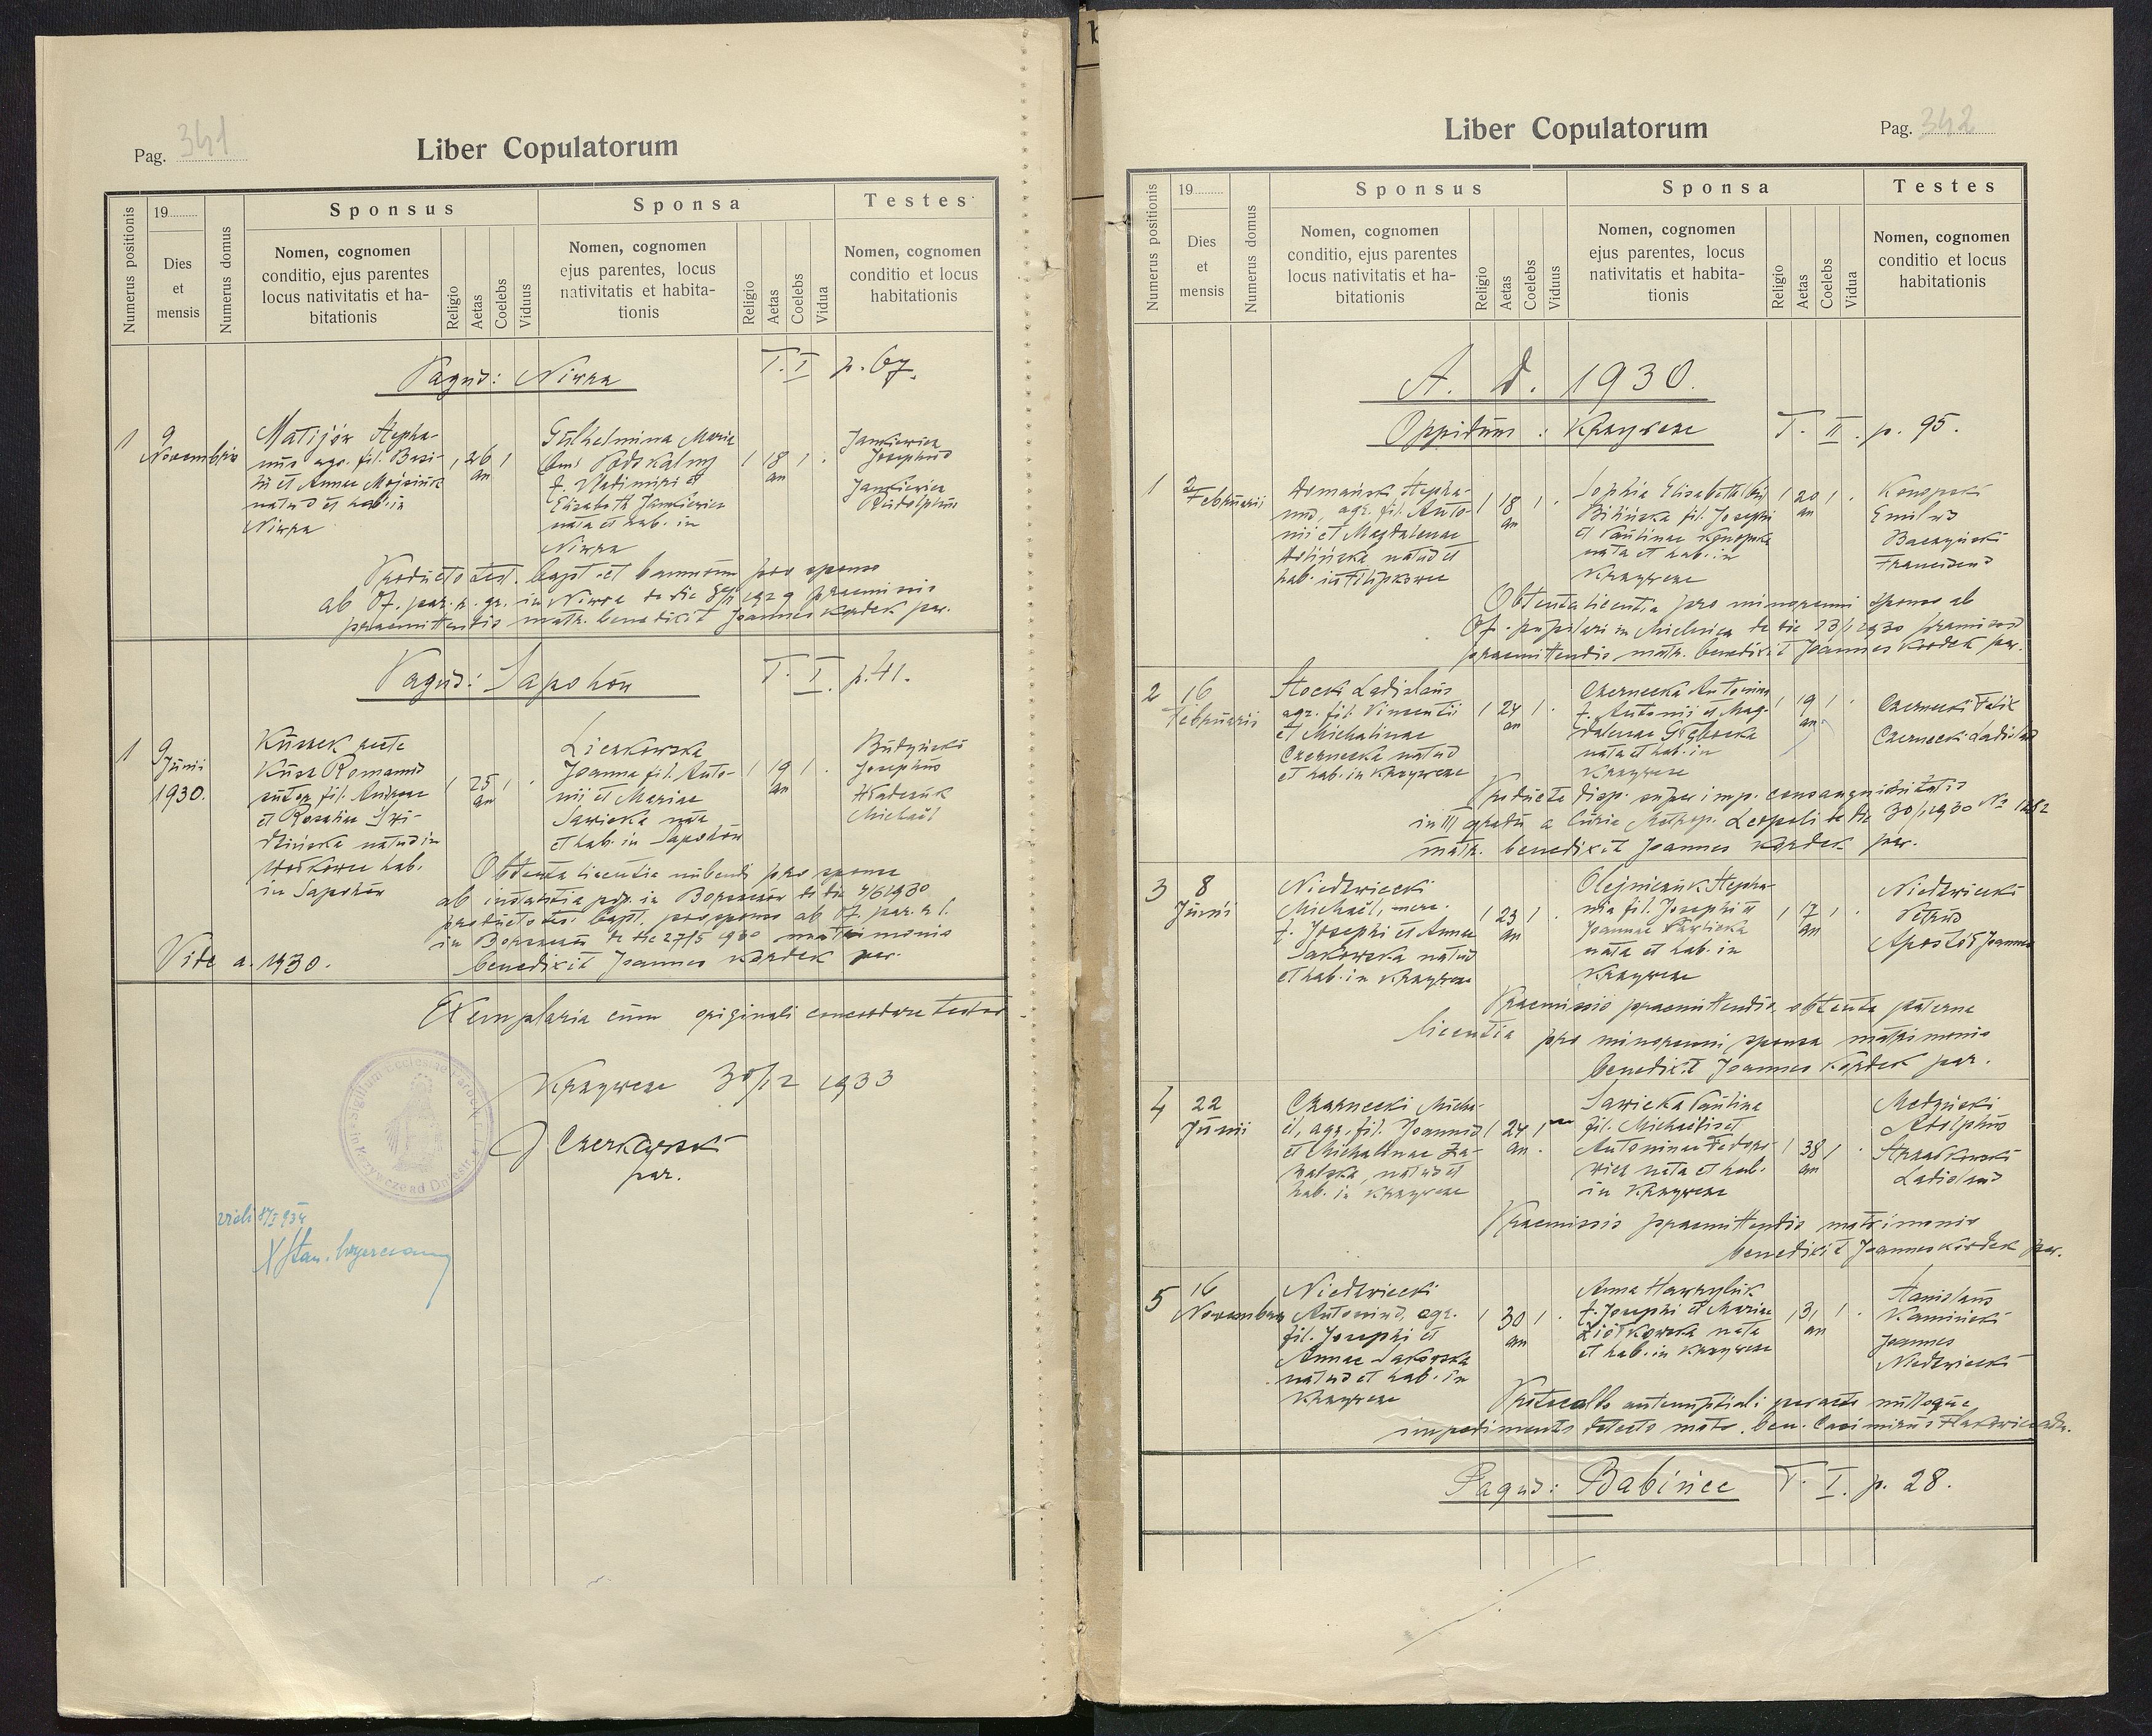 Pag. 341
Liber Copulatorum
Numerus positionis
19
Dies
et
mensis
Numerus domus
Sponsus
Nomen, cognomen
conditio, ejus parentes
locus nativitatis et ha-
bitationis
Religio
Aetas
Coelebs
Viduus
Sponsa
Nomen, cognomen
ejus parentes, locus
nativitatis et habita-
tionis
Religio
Aetas
Coelebs
Vidua
Testes
Nomen, cognomen
conditio et locus
habitationis
Pagus: Niwra T. I p. 67.
1
9
Novembris
Matijów Stepha-
nus agr. fil. Basi-
lii et Annae
natus et hab. in
Niwra
1 26 an 1
Gulhelmina Maria
f. Vladimiri et
Elisabeth Jankiewicz
nata et hab. in
Niwra
1 18 an 1
Jankiewicz
Josephus
Jankiewicz
Rudolphus
Producto test. bapt. et bannorum pro sponso
ab Of. par. r. gr. in Niwra de die 1929 praemissis
praemittendis matr. benedixit Joannes Kordek par.
Pagus: Sapohów T. I. p. 41.
1
9
Junii
1930.
Kuszek recte
Kusz Romanus
sutor fil. Andreae
et Rosaliae Świ-
dzińska natus in
hab.
in Sapohów
1 25 an 1
Liczkowska
Joanna fil. Anto-
nii et Mariae
Sawicka nata
et hab. in Sapohów
1 19 an 1
Budyński
Josephus
Michaël
Obtenta licentia nubendi pro sponsa
ab instantia pup. in Borszczów de die 4/6 1930
producto test. bapt. pro sponso ab Of. par. r. l.
in Borszczów de die 27/5 930 matrimonio
benedixit Joannes Kordek par.
Vide a. 1930.
Exemplaria cum originali concordare testor
Krzywcze 30/12 1933
J Czerkawski
par.
Sigillum Ecclesiae Paroch.
in Krzywcze ad Dniestr.
vidi 8/I 934
X Stan.
Liber Copulatorum
Pag. 342
Numerus positionis
19
Dies
et
mensis
Numerus domus
Sponsus
Nomen, cognomen
conditio, ejus parentes
locus nativitatis et ha-
bitationis
Religio
Aetas
Coelebs
Viduus
Sponsa
Nomen, cognomen
ejus parentes, locus
nativitatis et habita-
tionis
Religio
Aetas
Coelebs
Vidua
Testes
Nomen, cognomen
conditio et locus
habitationis
A. D. 1930.
Oppidum: Krzywcze T. II. p. 95.
1
2
Februarii
Stepha-
nus, agr. fil. Anto-
nii et Magdalenae
natus et
hab. in Filipkowce
1 18 an 1
Sophia Elisabeth
Bilińska fil. Josephi
et Paulinae Konopska
nata et hab. in
Krzywcze
1 20 an 1
Konopski
Emilus
Baczyński
Franciscus
Obtenta licentia pro minorenni sponso ab
Of. pupilari in Mielnica de die 23/1 1930 praemissis
praemittendis matr. benedixit Joannes Kordek par.
2
16
Februarii
Stocki Ladislaus
agr. fil. Vincentii
et Michalinae
Czernecka natus
et hab. in Krzywcze
1 24 an 1
Czernecka Antonina
f. Antonii et Mag-
dalenae Głębocka
nata et hab. in
Krzywcze
1 19 an 1
Czernecki Felix
Czernecki Ladislaus
Producta disp. super imp. consanguinitatis
in III gradu a Curia Metrop. Leopoli de die 30/1 1930 No
matr. benedixit Joannes Kordek par.
3
8
Junii
Niedzwiecki
Michaël, merc.
f. Josephi et Annae
Sakowska natus
et hab. in Krzywcze
1 23 an 1
Olejniczuk Stepha-
nia fil. Josephi et
Joannae Pawlicka
nata et hab. in
Krzywcze
1 17 an 1
Niedzwiecki
Petrus
Apostół Joannes
Praemissis praemittendis, obtenta paterna
licentia pro minorenni sponsa matrimonio
benedixit Joannes Kordek par.
4
22
Junii
Czarnecki Micha-
ël, agr. fil. Joannis
et Michalinae Za-
natus et
hab. in Krzywcze
1 24 an 1
Sawicka Paulina
fil. Michaëlis et
Antoninae Fedoro-
wicz nata et hab.
in Krzywcze
1 38 an 1
Medyński
Adolphus
Ladislaus
Praemissis praemittendis matrimonio
benedixit Joannes Kordek par.
5
16
Novembris
Niedzwiecki
Antonius, agr.
fil. Josephi et
Annae Sakowska
natus et hab. in
Krzywcze
1 30 an 1
Anna Hawryluk
f. Josephi et Mariae
Ziółkowska nata
et hab. in Krzywcze
1 31 an 1
Stanislaus
Kamiński
Joannes
Niedzwiecki
Protocollo antenuptiali peracto nulloque
impedimento detecto matr. ben. Casimirus
Pagus: Babińce T. I. p. 28.